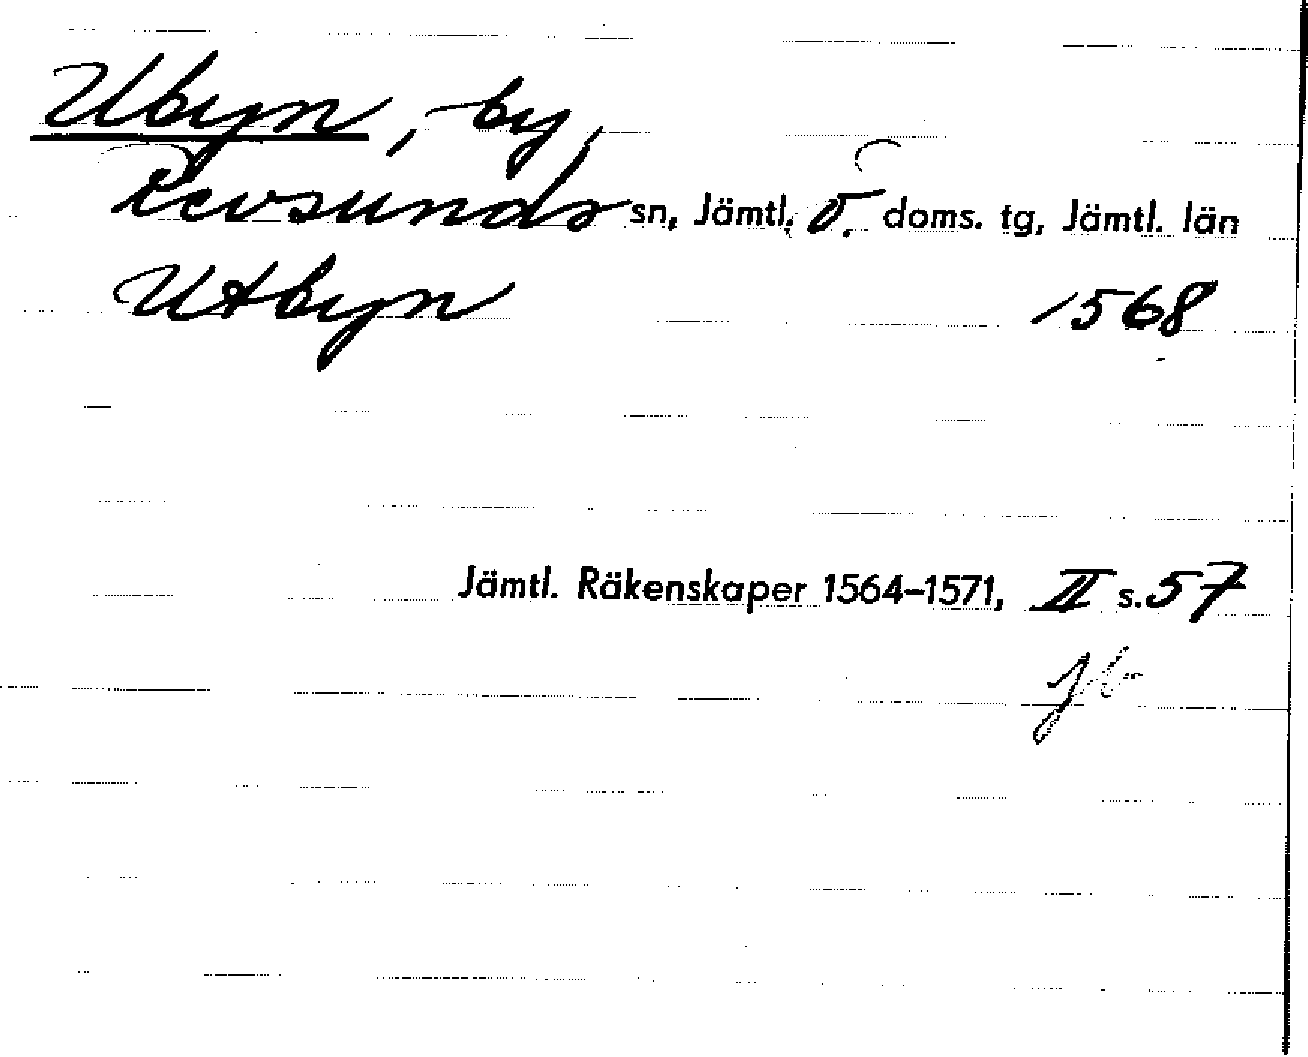 Ubyn, by,
Revsunds sn, Jämtl. Ö. doms. tg, Jämtl. län
Utbyn 1568
Jämtl. Räkenskaper 1564–1571, II s. 57